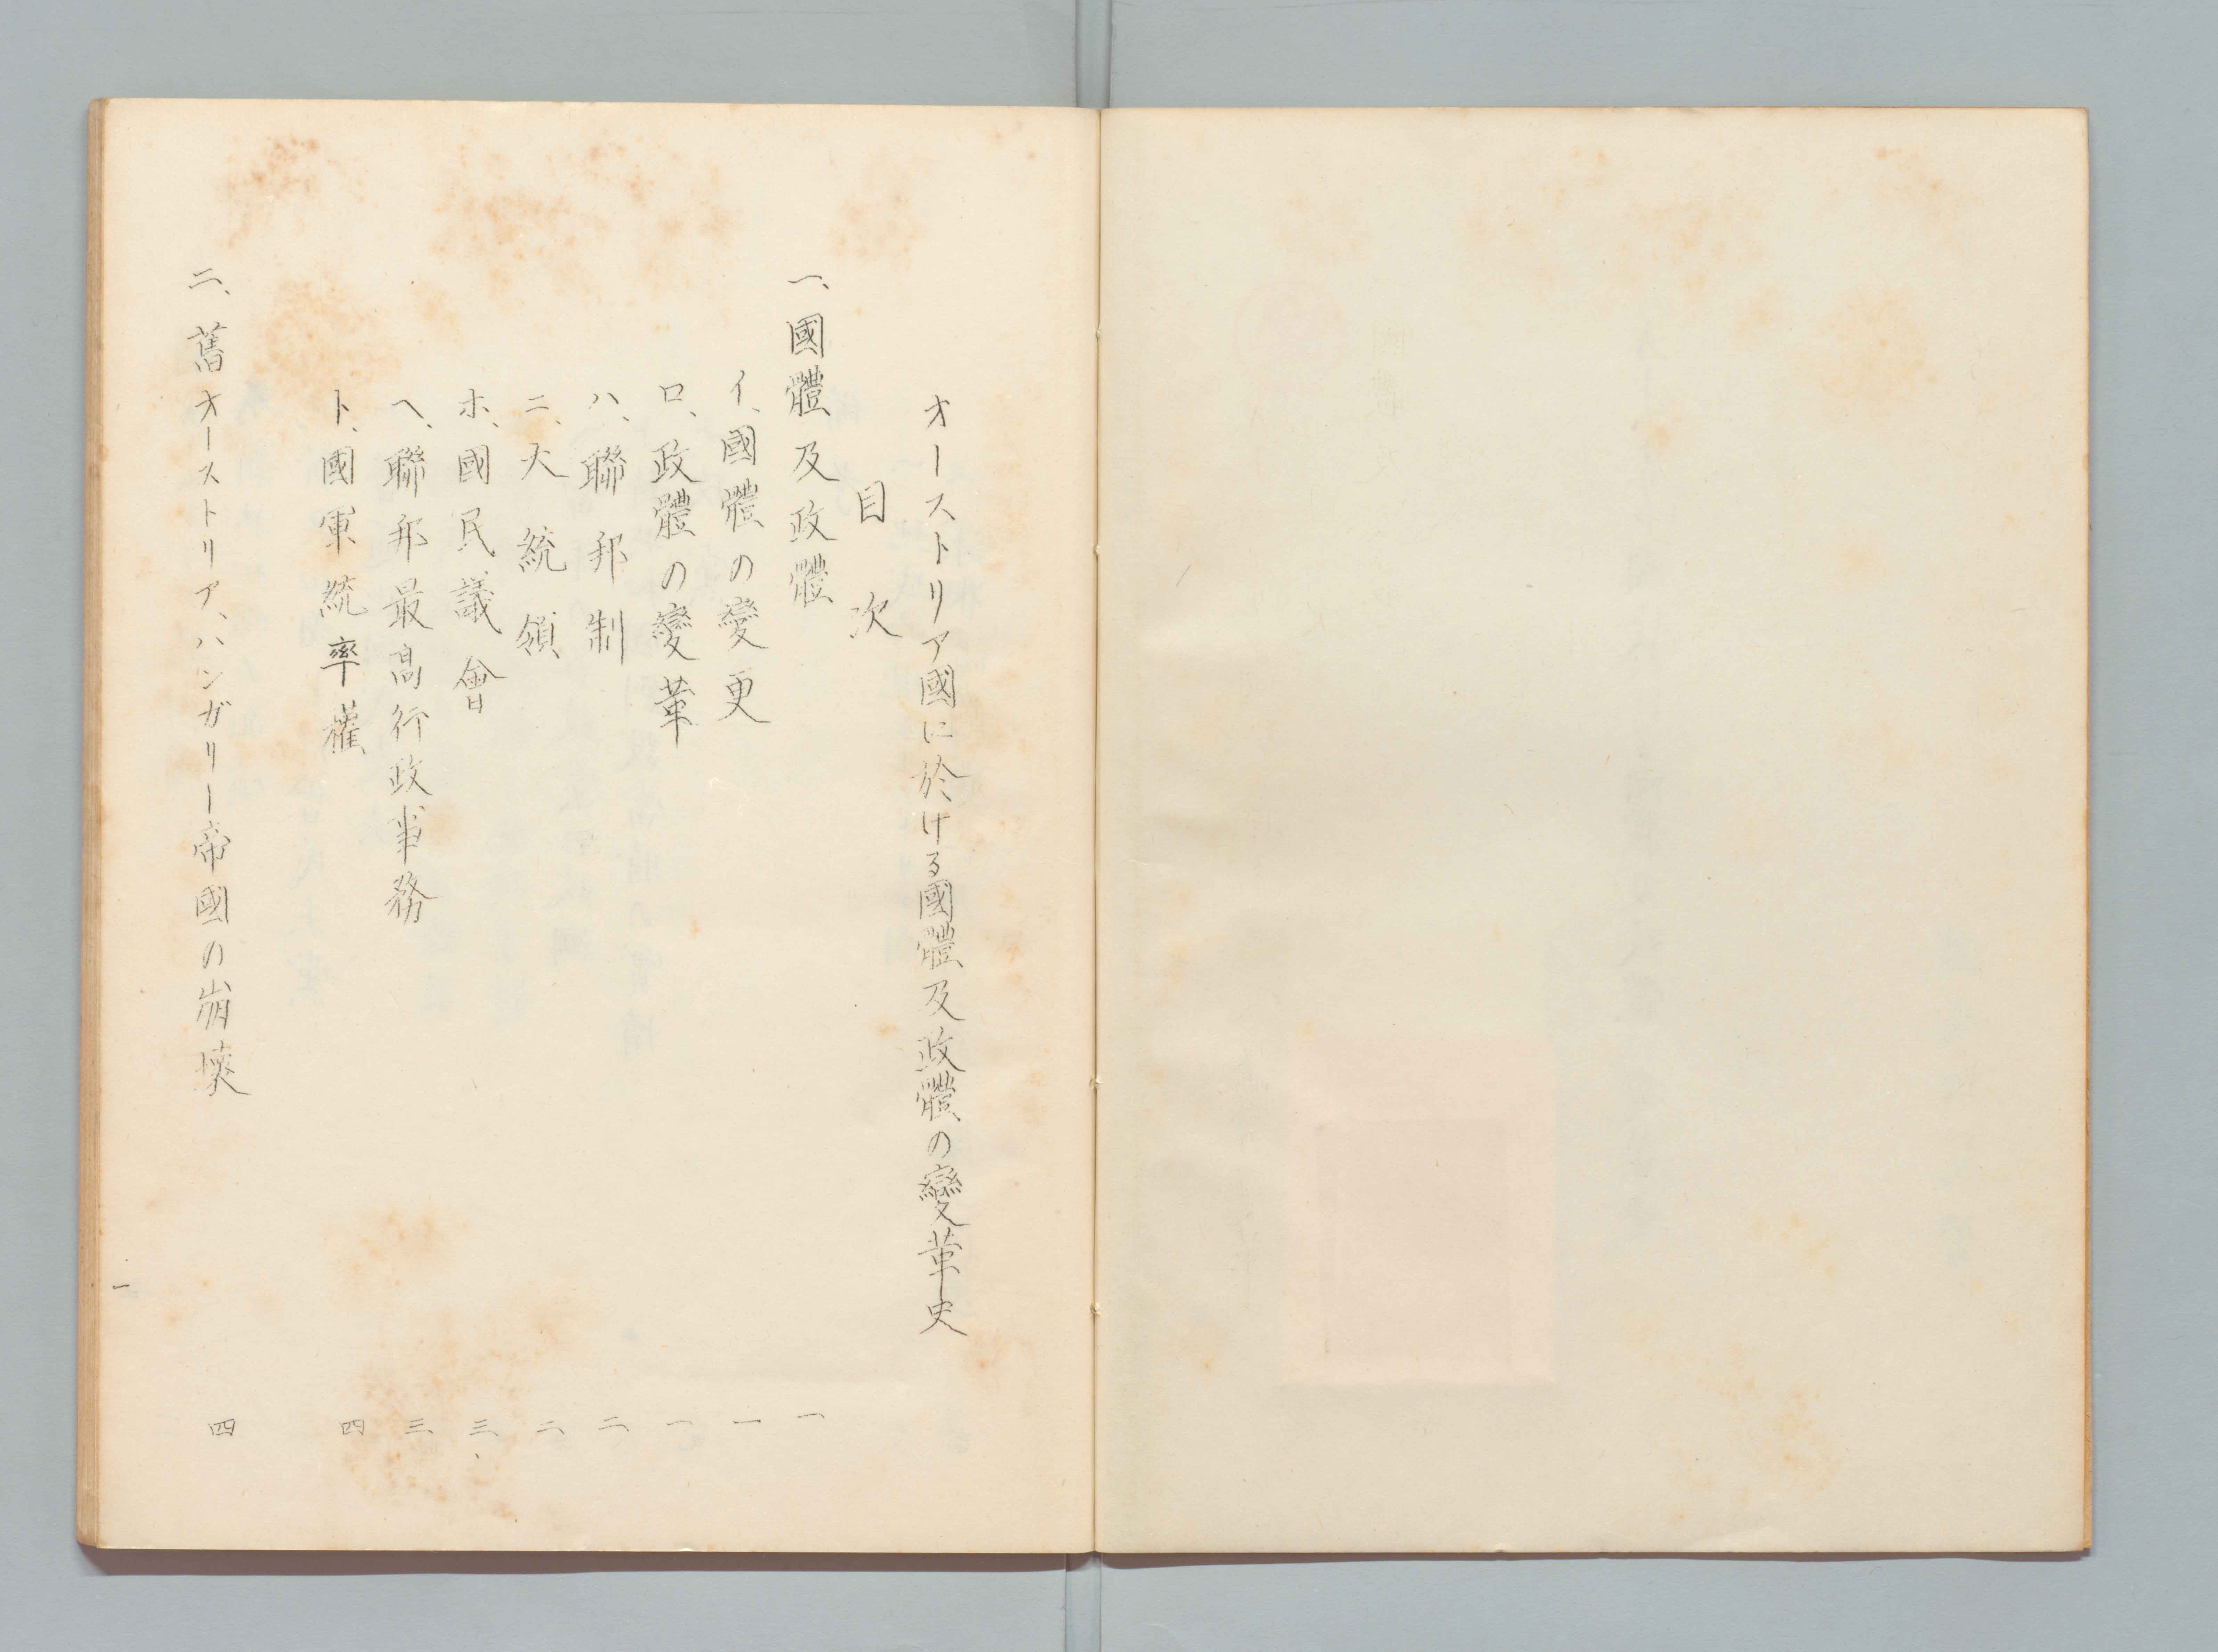 オーストリア國に於ける國體及政體の變革史
目次
一、國體及政體 一
イ、國體の變更 一
ロ、政體の變革 一
ハ、聯邦制 二
ニ、大統領 二
ホ、國民議會 三
ヘ、聯邦最高行政事務 三
ト、國軍統率權 四
二、舊オーストリア、ハンガリー帝國の崩壞 四
一